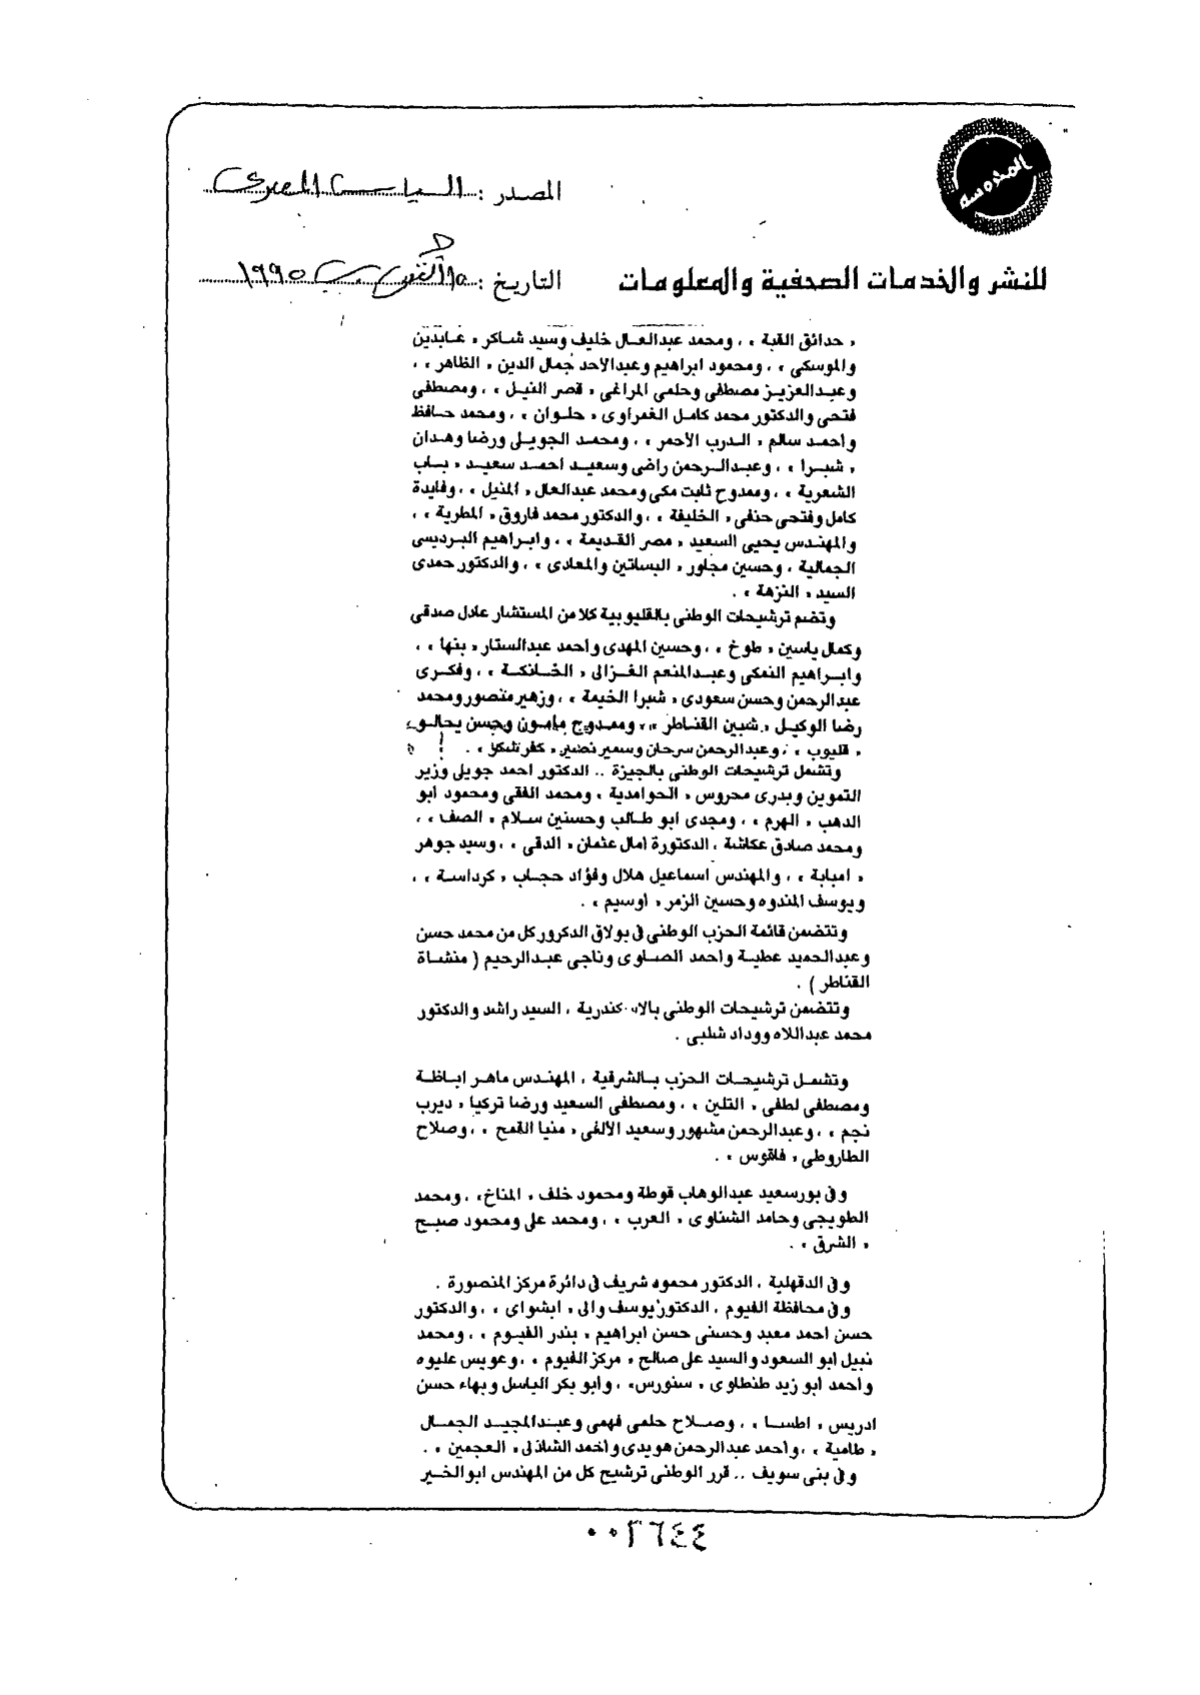 المصدر : السياسى المصرى
المدوسة
للنشر والخدمات الصحفية والمعلومات
التاريخ : ١٥ أكتوبر ١٩٩٥
« حدائق القبة » ، ومحمد عبدالعال خليف وسيد شاكر « عابدين
والموسكى » ، ومحمود ابراهيم وعبدالاحد جمال الدين « الظاهر » ،
وعبدالعزيز مصطفى وحلمى المراغى « قصر النيل » ، ومصطفى
فتحى والدكتور محمد كامل الغمراوى « حلوان » ، ومحمد حافظ
واحمد سالم « الدرب الأحمر » ، ومحمد الجويلى ورضا وهدان
« شبرا » ، وعبدالرحمن راضى وسعيد احمد سعيد « باب
الشعرية » ، وممدوح ثابت مكى ومحمد عبدالعال « المنيل » ، وفايدة
كامل وفتحى حنفى « الخليفة » ، والدكتور محمد فاروق « المطرية » ،
والمهندس يحيى السعيد « مصر القديمة » ، وابراهيم البرديسى
الجمالية ، وحسين مجاور « البساتين والمعادى » ، والدكتور حمدى
السيد « النزهة » .
وتضم ترشيحات الوطنى بالقليوبية كلا من المستشار عادل صدقى
وكمال ياسين « طوخ » ، وحسين المهدى واحمد عبدالستار « بنها » ،
وابراهيم النمكى وعبدالمنعم الغزالى « الخانكة » ، وفكرى
عبدالرحمن وحسن سعودى « شبرا الخيمة » ، وزهير منصور ومحمد
رضا الوكيل « شبين القناطر » ، وممدوح مامون وحسن
« قليوب » ، وعبدالرحمن سرحان وسمير نصير « كفر شكر » .
وتشمل ترشيحات الوطنى بالجيزة .. الدكتور احمد جويلى وزير
التموين وبدرى محروس « الحوامدية » ومحمد الفقى ومحمود ابو
الدهب « الهرم » ، ومجدى ابو طالب وحسنين سلام « الصف » ،
ومحمد صادق عكاشة ، الدكتورة امال عثمان « الدقى » ، وسيد جوهر
« امبابة » ، والمهندس اسماعيل هلال وفؤاد حجاب « كرداسة » ،
ويوسف المندوه وحسين الزمر « اوسيم » .
وتتضمن قائمة الحزب الوطنى فى بولاق الدكرور كل من محمد حسن
وعبدالحميد عطية واحمد الصاوى وناجى عبدالرحيم ( منشاة
القناطر ) .
وتتضمن ترشيحات الوطنى بالاسكندرية ، السيد راشد والدكتور
محمد عبداللاه ووداد شلبى .
وتشمل ترشيحات الحزب بالشرقية ، المهندس ماهر اباظة
ومصطفى لطفى « التلين » ، ومصطفى السعيد ورضا تركيا « ديرب
نجم » ، وعبدالرحمن مشهور وسعيد الألفى « منيا القمح » ، وصلاح
الطاروطى « فاقوس » .
وفى بورسعيد عبدالوهاب قوطة ومحمود خلف « المناخ» ، ومحمد
الطويجى وحامد الشناوى « العرب » ، ومحمد على ومحمود صبح
« الشرق » .
وفى الدقهلية ، الدكتور محمود شريف فى دائرة مركز المنصورة .
وفى محافظة الفيوم ، الدكتور يوسف والى « ابشواى » ، والدكتور
حسن احمد معبد وحسنى حسن ابراهيم « بندر الفيوم » ، ومحمد
نبيل ابو السعود والسيد على صالح « مركز الفيوم » ، وعويس عليوه
واحمد ابو زيد طنطاوى « سنورس» ، وابو بكر الباسل وبهاء حسن
ادريس « اطسا » ، وصلاح حلمى فهمى وعبدالمجيد الجمال
« طامية » ، واحمد عبدالرحمن هويدى واحمد الشاذلى « العجمين » .
وفى بنى سويف .. قرر الوطنى ترشيح كل من المهندس ابو الخير
٠٠٣٦٤٤